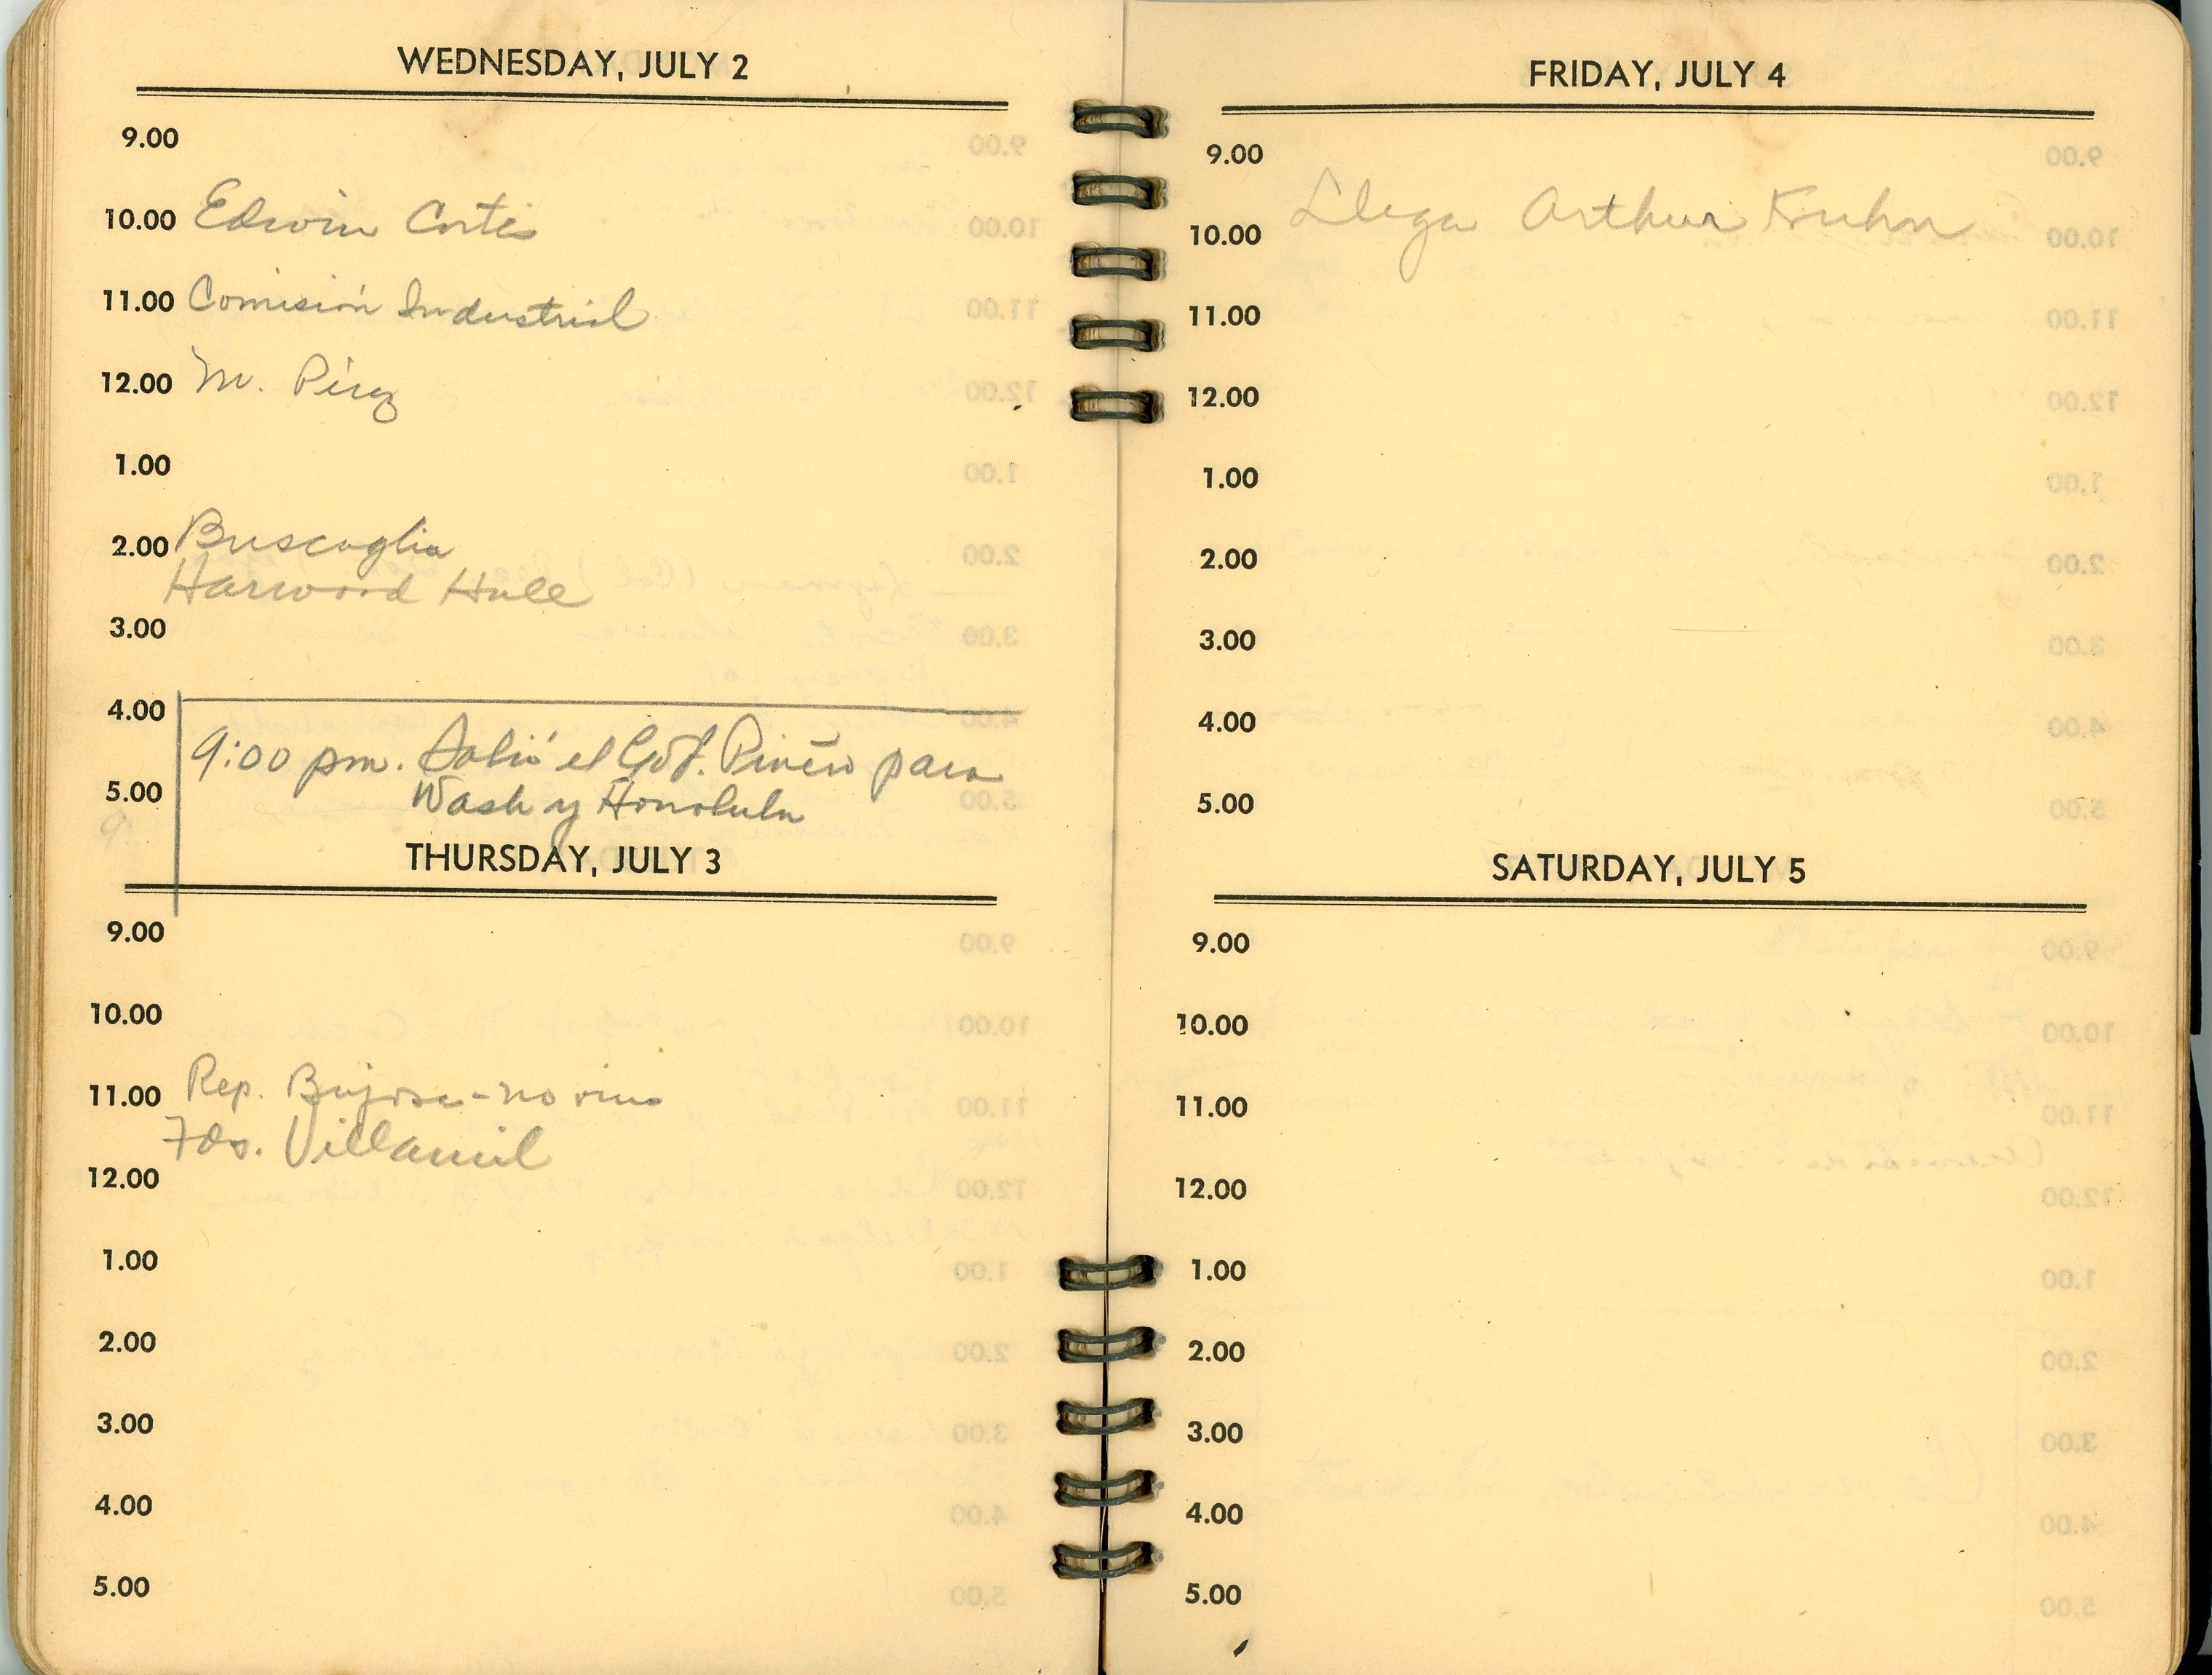 WEDNESDAY, JULY 2
9.00
10.00 Edwin Cortés
11.00 Comisión Industrial
12.00 M. Pérez
1.00
2.00 Buscaglia
Harwood Hull
3.00
4.00
9:00 pm. Salió el Gob. Piñero para
5.00 Wash y Honolulu
THURSDAY, JULY 3
9.00
10.00
11.00 Rep. - no vino
Fdo. Villamil
12.00
1.00
2.00
3.00
4.00
5.00
FRIDAY, JULY 4
9.00
10.00 Llega Arthur Kuhn
11.00
12.00
1.00
2.00
3.00
4.00
5.00
SATURDAY, JULY 5
9.00
10.00
11.00
12.00
1.00
2.00
3.00
4.00
5.00